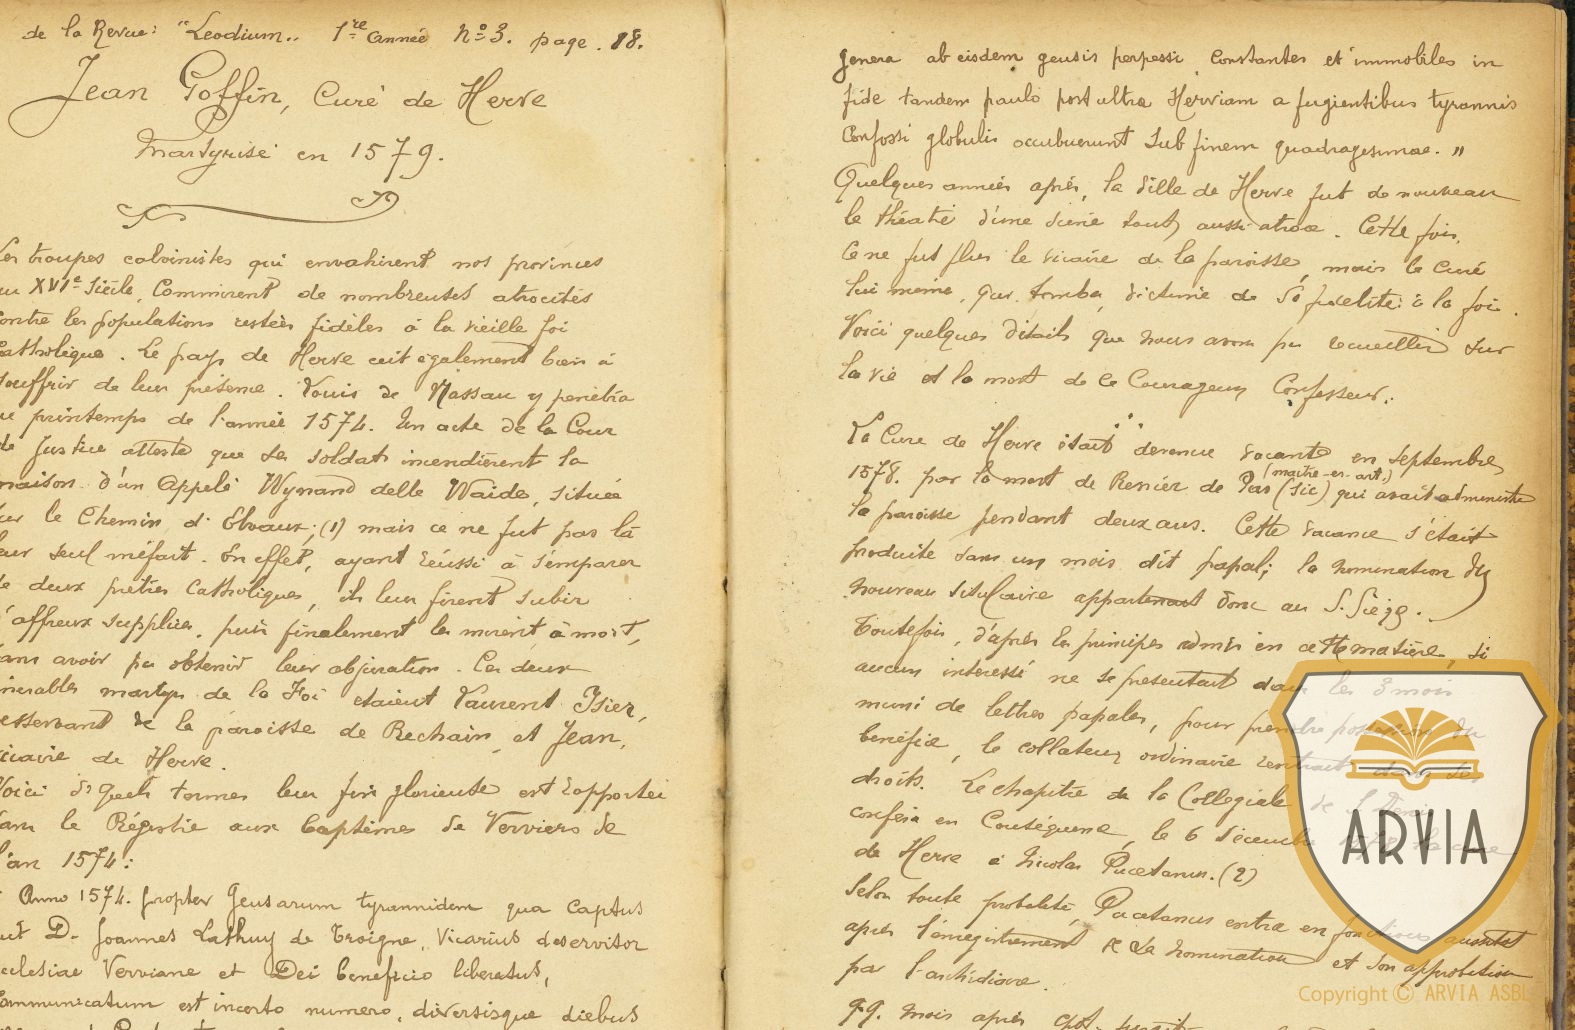 de la Revue: "Leodium.. 1re année No 3. page. 18.
Jean Goffin, Curé de Herve
Martyrisé en 1579.
Les troupes calvinistes qui envahirent nos provinces
au XVIe Siècle, commirent de nombreuses atrocités
contre les populations restées fidèles à la vieille foi
catholique. Le pays de Herve eut également bien à
souffrir de leur présence. Louis de Nassau y pénétra
au printemps de l'année 1574. Un acte de la Cour
de Justice atteste que ses soldats incendièrent la
maison d'un appelé Wynand delle Waide, située
sur le Chemin d'Elvaux; (1) mais ce ne fut pas là
leur seul méfait. En effet, ayant réussi à s'emparer
de deux prêtres catholiques, ils leur firent subir
d'affreux supplices, puis finalement les mirent à mort,
sans avoir pu obtenir leur abjuration. Ces deux
vénérables martyrs de la Foi étaient Laurent Isier,
desservant de la paroisse de Rechain, et Jean,
vicaire de Herve.
Voici en quels termes leur fin glorieuse est rapportée
dans le Régistre aux baptêmes de Verviers de
l'an 1574:
Anno 1574. propter Geusarum tyrannidem qua captus
fuit D. Joannes Lathuy de Troigne, Vicarius deservitor
ecclesiae Verviane et Dei beneficio liberatus,
communicatum est incerto numero, diversisque diebus
genera ab eisdem geusis perpessi constantes et immobiles in
fide tandem paulo post ultra Herviam a fugientibus tyrannis
confossi globulis occubuerunt sub finem quadragesimae. "
Quelques années après, la ville de Herve fut de nouveau
le théatre d'une scène tout aussi atroce. Cette fois,
ce ne fut plus le vicaire de la paroisse, mais le curé
lui même, qui tomba, victime de sa fidélité à la foi.
Voici quelques détails que nous avons pu recueillir sur
la vie et la mort de ce courageux Confesseur.
La Cure de Herve était devenue vacante en septembre
1578. par la mort de Renier de Pas (sic) (maitre-en-art.) qui avait administré
la paroisse pendant deux ans. Cette vacance s'était
produite dans un mois dit papal; la nomination du
nouveau titulaire appartenait donc au S. Siège.
Toutefois, d'après les principes admis en cette matière, si
aucun intéressé ne se présentait dans les 3 mois
muni de lettres papales, pour prendre possession du
bénéfice, le collateur ordinaire rentrait dans ses
droits. Le chapitre de la Collégiale de S. Denis
conféra en conséquence, le 6 décembre 1578 la cure
de Herve à Nicolas Pucetanus. (2)
Selon toute probabilité, Pucetanus entra en fonctions aussitôt
après l'enregistrement de sa nomination et son approbation
par l'archidiacre.
mois après
ARVIA
Copyright © ARVIA ASBL